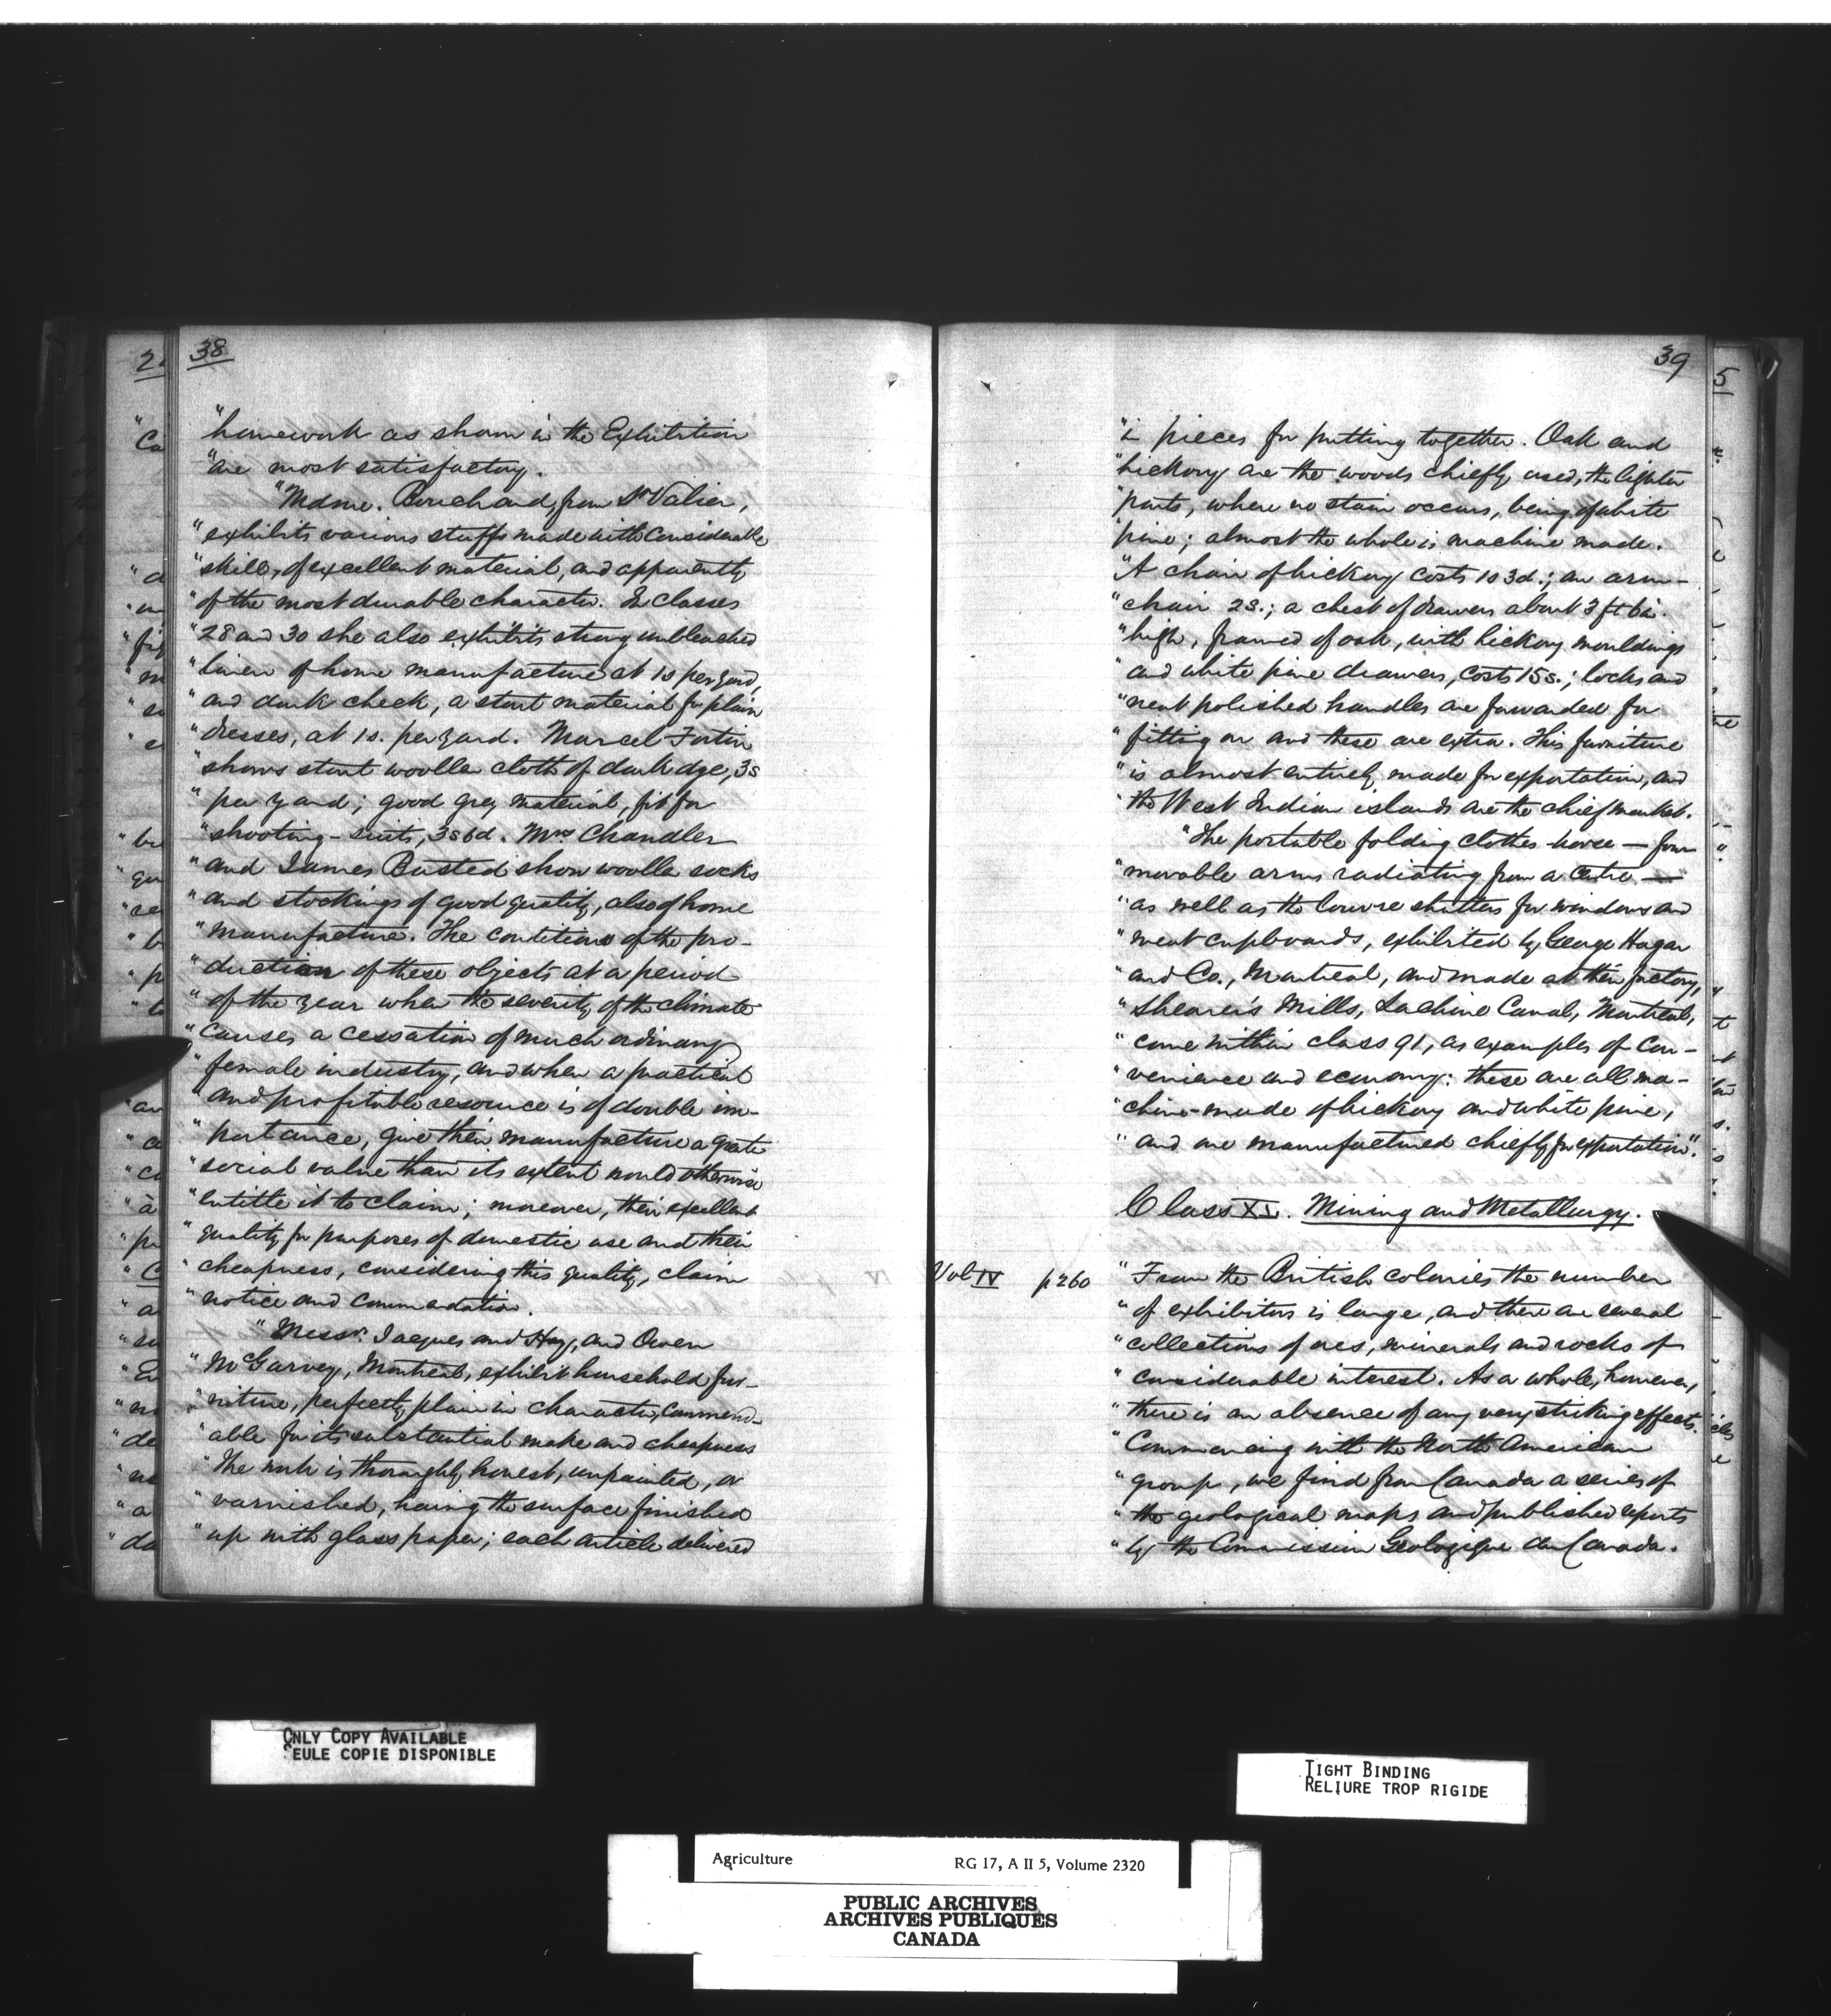 38
"homework as shown in the Exhibition
"are most satisfactory.
"Mdme. Bouchard, from St Valier,
"exhibits various stuffs made with considerable
"skill, of excellent material, and apparently
"of the most durable character. In classes
"28 and 30 she also exhibits strong unbleached
"linen of home manufacture at 1s per yard,
"and dark check, a stout material for plain
"dresses, at 1s. per yard. Marcel Fortin
"shows stout woollen cloth of dark dye, 3s
"per yard; good grey material, fit for
"shooting-suits, 3s 6d. Mrs Chandler
"and James Busted show woollen socks
"and stockings of good quality, also of home
"manufacture. The conditions of the pro-
"duction of these objects at a period
"of the year when the severity of the climate
"causes a cessation of much ordinary
"female industry, and when a practical
"and profitable resource is of double im-
"portance, give their manufacture a greater
"social value than its extent would otherwise
"entitle it to claim; moreover, their excellent
"quality for purposes of domestic use and their
"cheapness, considering this quality, claim
"notice and commendation.
"Messrs. Jacques and Hay, and Owen
"McGarvey, Montreal, exhibit household fur-
"niture, perfectly plain in character, commend-
"able for its substantial make and cheapness
"The work is thoroughly honest, unpainted, or
"varnished, having the surface finished
"up with glass paper; each article delivered
39
"in pieces for putting together. Oak and
"hickory are the woods chiefly used, the lighter
"parts, where no stain occurs, being of white
"pine; almost the whole is machine made.
"A chair of hickory costs 1s 3d.; an arm-
"chair 2s.; a chest of drawers about 3 ft 6 in.
"high, framed of oak, with hickory mouldings
"and white pine drawers, costs 15s.; locks and
"neat polished handles are forwarded for
"fitting on and these are extra. This furniture
"is almost entirely made for exportation, and
"the West Indian islands are the chief market.
"The portable folding clothes-horse — four
"movable arms radiating from a centre —
"as well as the louvre shutters for windows and
"meat cupboards, exhibited by George Hagar
"and Co., Montreal, and made at their factory,
"Shearer's Mills, Lachine Canal, Montreal,
"come within class 91, as examples of con-
"venience and economy: these are all ma-
"chine-made of hickory and white pine,
"and are manufactured chiefly for exportation".
Class XL. Mining and Metallurgy.
Vol IV p 260 "From the British colonies the number
"of exhibitors is large, and there are several
"collections of ores, minerals and rocks of
"considerable interest. As a whole, however,
"there is an absence of any very striking effects.
"Commencing with the North American
"group, we find from Canada a series of
"the geological maps and published reports
"by the Commission Geologique du Canada.
ONLY COPY AVAILABLE
SEULE COPIE DISPONIBLE
TIGHT BINDING
RELIURE TROP RIGIDE
Agriculture RG 17, A II 5, Volume 2320
PUBLIC ARCHIVES
ARCHIVES PUBLIQUES
CANADA